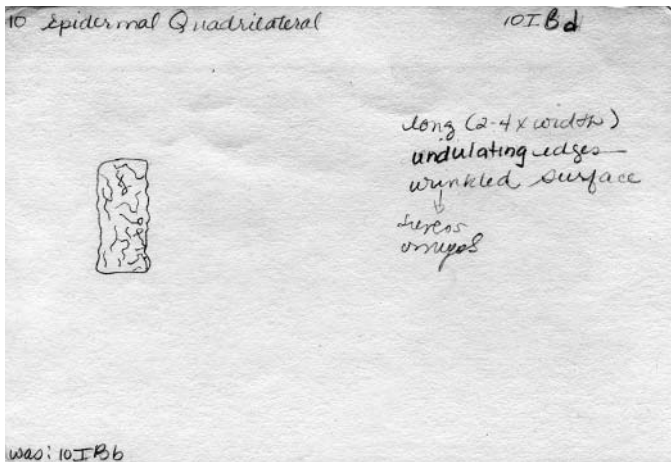 10 Epidermal Quadrilateral
10IBd
long (2-4 x width)
undulating edges
wrinkled surface
surcos
was: 10IBb